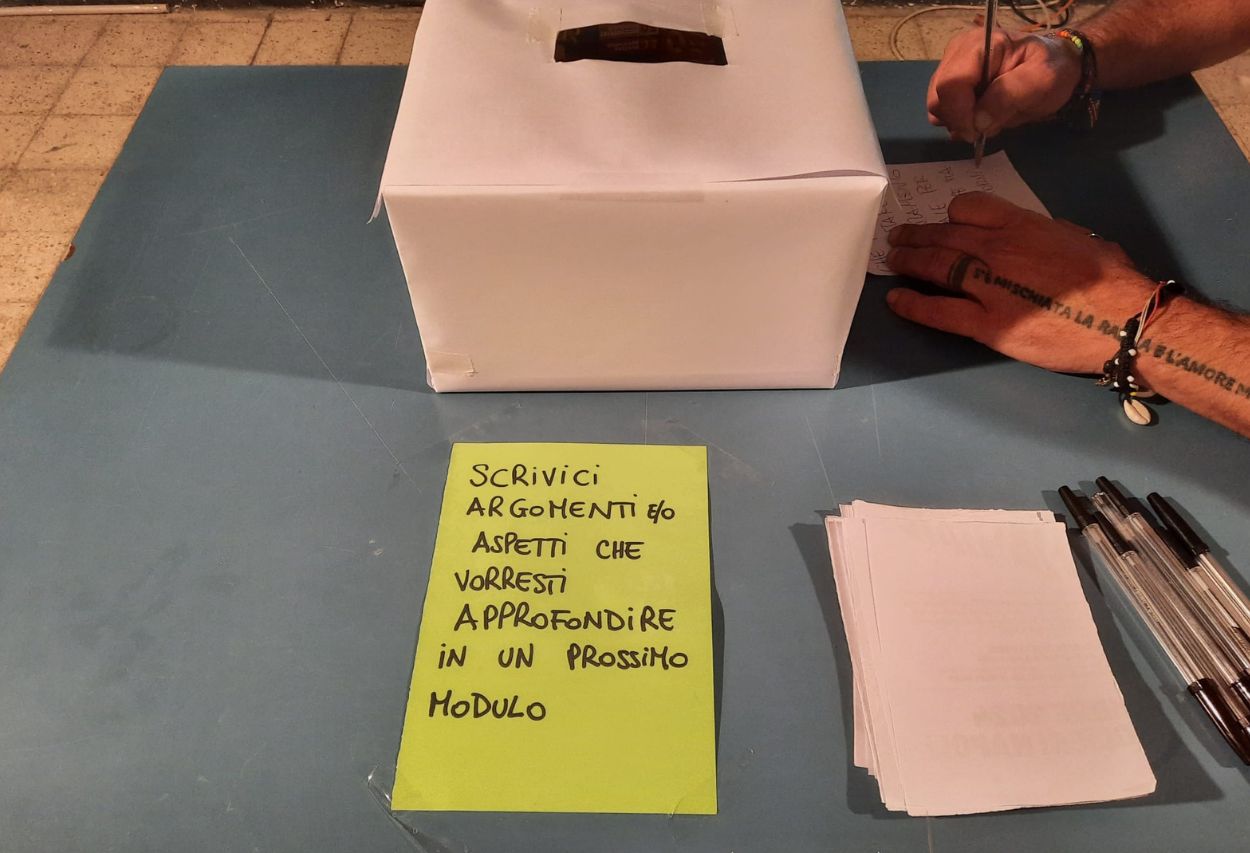 SCRIVICI
ARGOMENTI E/O
ASPETTI CHE
VORRESTI
APPROFONDIRE
IN UN PROSSIMO
MODULO
S'È MISCHIATA LA RA E L'AMORE